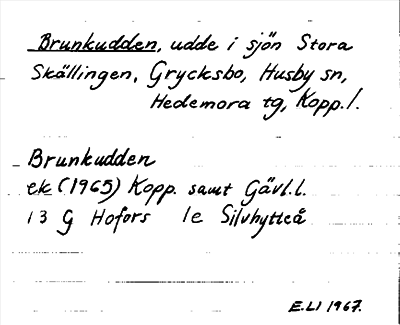 Brunkudden, udde i sjön Stora
Skällingen, Grycksbo, Husby sn,
Hedemora tg, Kopp. l.
Brunkudden
ek (1965) Kopp. samt Gävl. l.
13 G Hofors 1e Silvhytteå
E.LI 1967.